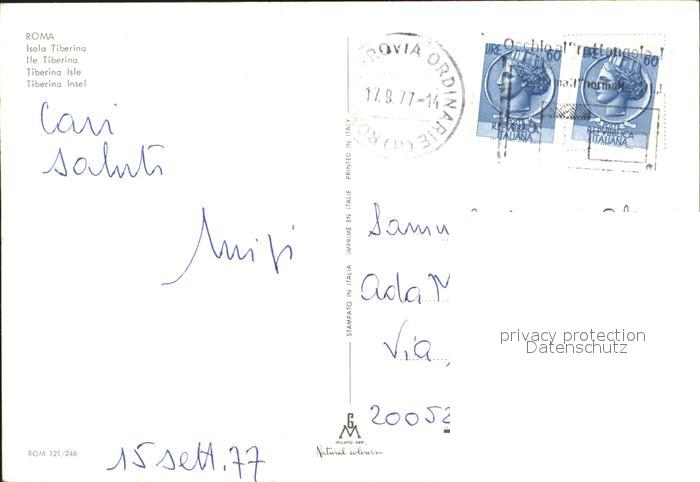 ROMA
Isola Tiberina
Ile Tiberina
Tiberina Isle
Tiberina Insel
Cari
saluti
Luigi
15 sett. 77
ROM 121/248
STAMPATO IN ITALIA IMPRIME EN ITALIE PRINTED IN ITALY
GM
MILANO
Natural colours
ROVIA ORDINARIE (d) RO
17.9.77-14
Occhio al "rettangolo"!
LIRE 60
REPUBBLICA
ITALIANA
LIRE 60
REPUBBLICA
ITALIANA
Ada M
Via
20052
privacy protection
Datenschutz